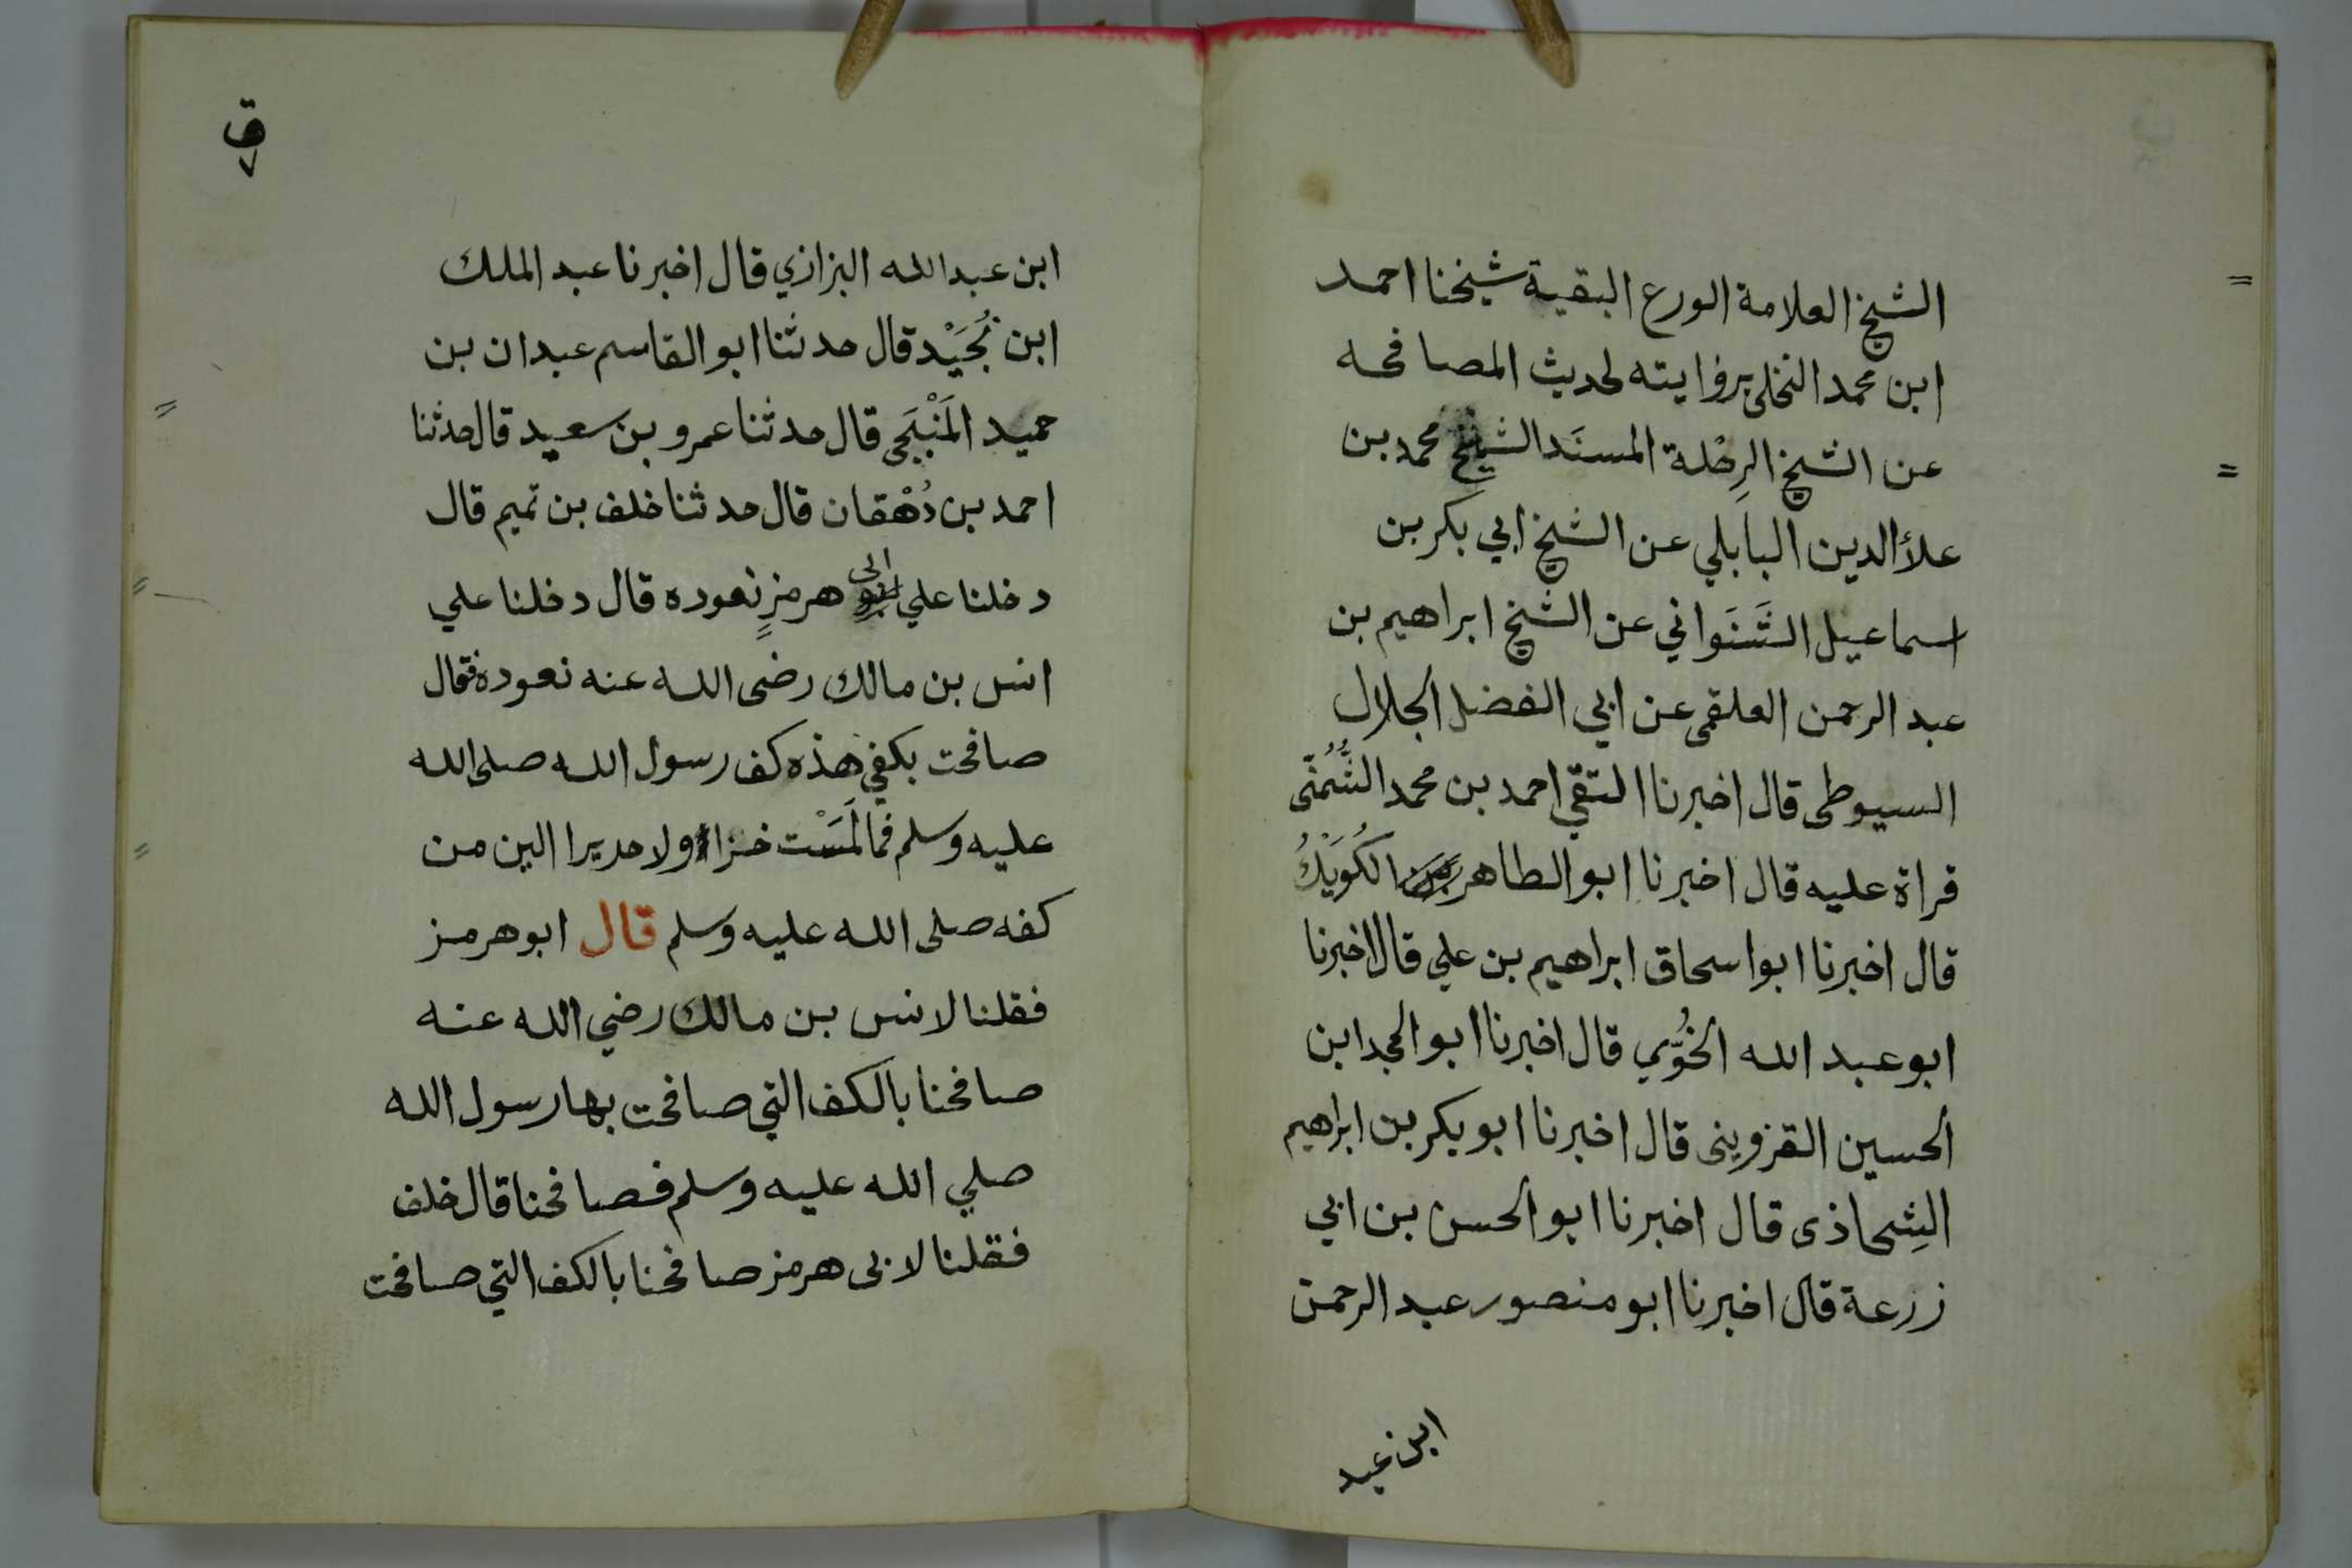 الشيخ العلامة الورع البقية شيخنا احمد
ابن محمد النخلي بروايته لحديث المصافحه
عن الشيخ الرِحْلة المسنَد الشيخ محمد بن
علأ الدين البابلي عن الشيخ ابي بكر بن
اسماعيل الشَنَواني عن الشيخ ابراهيم بن
عبد الرحمن العلقمي عن ابي الفضل الجلال
السيوطي قال اخبرنا التقي احمد بن محمد الشُّمُنّى
قراة عليه قال اخبرنا ابو الطاهر بن الكُوَيْكُ
قال اخبرنا ابو اسحاق ابراهيم بن علي قال اخبرنا
ابو عبد الله الخُوّيي قال اخبرنا ابو المجد ابن
الحسين القزويني قال اخبرنا ابو بكر بن ابراهيم
الشِحاذى قال اخبرنا ابو الحسن بن ابي
زرعة قال اخبرنا ابو منصور عبد الرحمن
ابن عبد
ق
٧
ابن عبد الله البزازي قال اخبرنا عبد الملك
ابن نُجَيْد قال حدثنا ابو القاسم عبدان بن
حميد المَنْبَجي قال حدثنا عمرو بن سعيد قال حدثنا
احمد بن دُهْقان قال حدثنا خلف بن تميم قال
دخلنا علي ابى هرمزٍ نعوده قال دخلنا علي
انس بن مالك رضى الله عنه نعوده فقال
صافحت بكفي هذه كف رسول الله صلى الله
عليه وسلم فما لمَسْت خزا ولا حريرا الين من
كفه صلى الله عليه وسلم قال ابو هرمز
فقلنا لانس بن مالك رضي الله عنه
صافحنا بالكف التي صافحت بها رسول الله
صلي الله عليه وسلم فصافحنا قال خلف
فقلنا لابى هرمز صافحنا بالكف التي صافحت